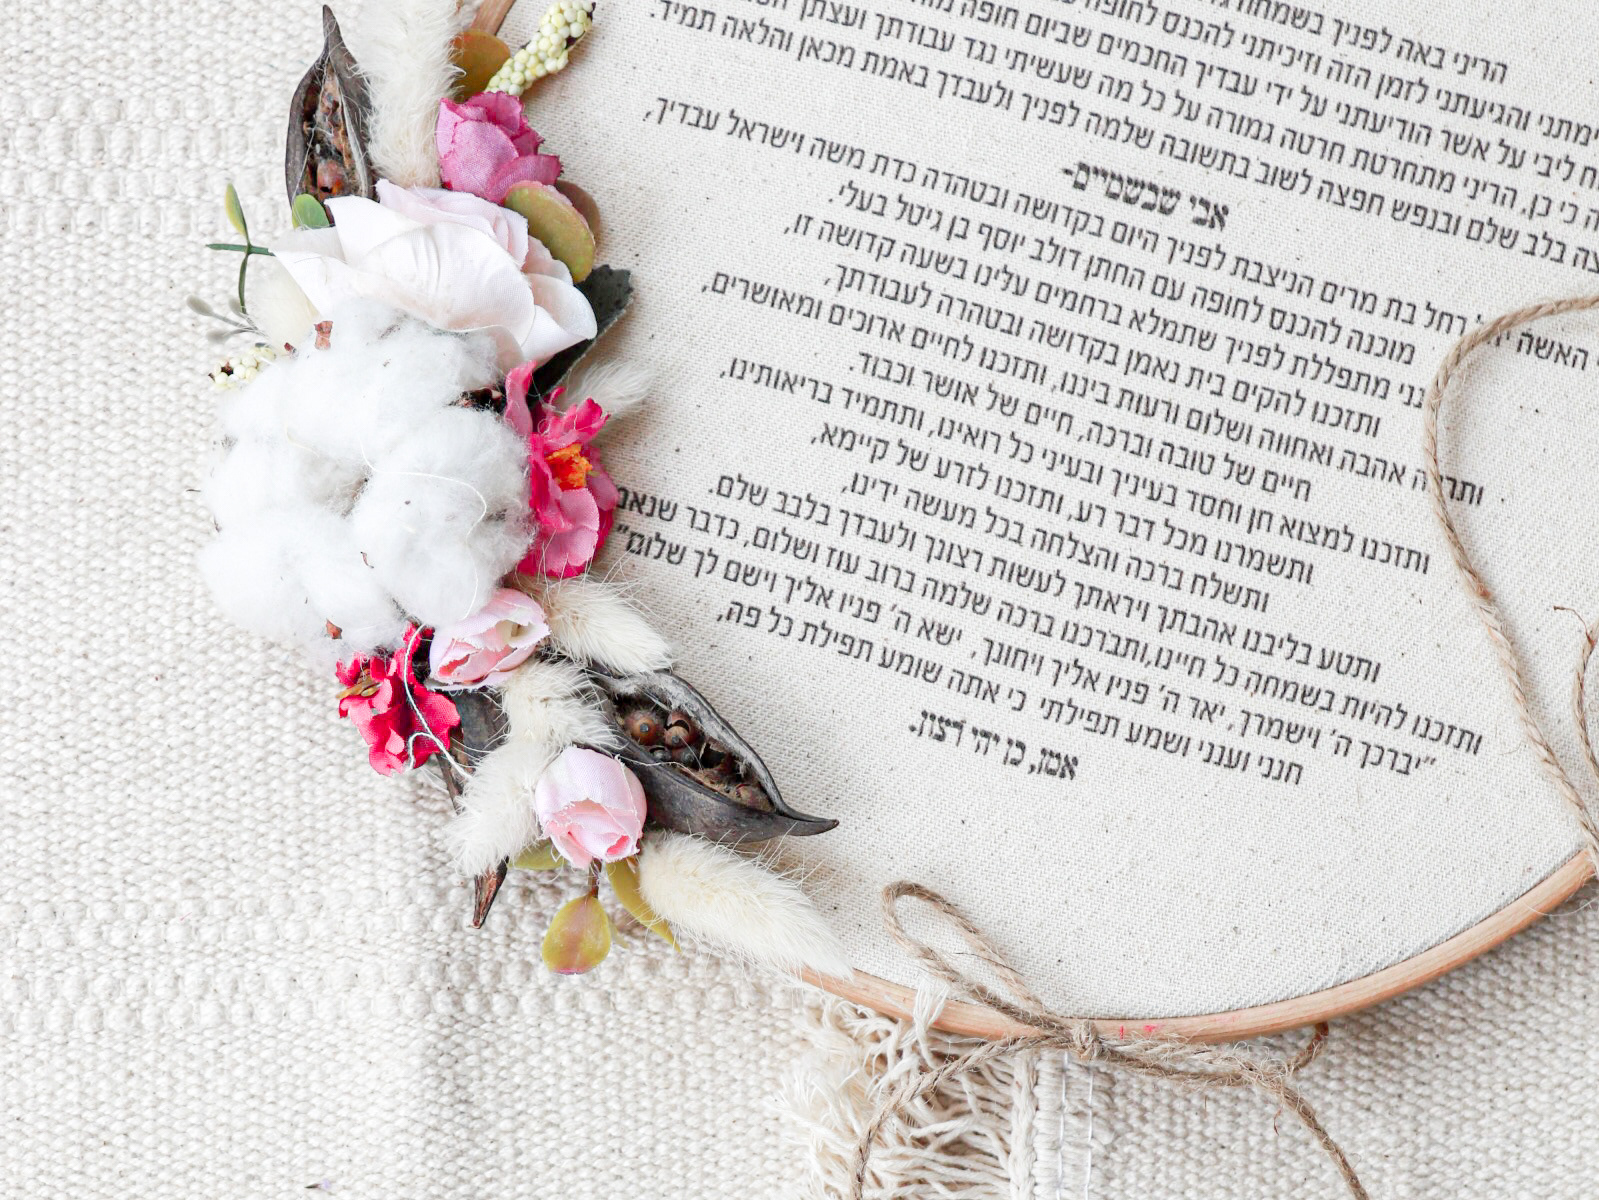 הריני באה לפניך בשמחה
והגיעתני לזמן הזה וזיכיתני להכנס לחופה
ליבי על אשר הודיעתני על ידי עבדיך החכמים שביום חופה
כי כן, הריני מתחרטת חרטה גמורה על כל מה שעשיתי נגד עבודתך ועצתך
בלב שלם ובנפש חפצה לשוב בתשובה שלמה לפניך ולעבדך באמת מכאן והלאה תמיד.
אבי שבשמיים-
האשה רחל בת מרים הניצבת לפניך היום בקדושה ובטהדה כדת משה וישראל עבדיך,
מוכנה להכנס לחופה עם החתן דולב יוסף בן גיטל בעלי.
מתפללת לפניך שתמלא ברחמים עלינו בשעה קדושה זו,
ותזכנו להקים בית נאמן בקדושה ובטהרה לעבודתך,
אהבה ואחווה ושלום ורעות ביננו, ותזכנו לחיים ארוכים ומאושרים,
חיים של טובה וברכה, חיים של אושר וכבוד.
ותזכנו למצוא חן וחסד בעיניך ובעיני כל רואינו, ותתמיד בריאותינו,
ותשמרנו מכל דבר רע, ותזכנו לזרע של קיימא,
ותשלח ברכה והצלחה בכל מעשה ידינו,
ותטע בליבנו אהבתך ויראתך לעשות רצונך ולעבדך בלבב שלם.
ותזכנו להיות בשמחה כל חיינו,ותברכנו ברכה שלמה ברוב עוז ושלום, כדבר שנאמ
"יברכך ה' וישמרך, יאר ה' פניו אליך ויחונך, ישא ה' פניו אליך וישם לך שלום"
חנני וענני ושמע תפילתי כי אתה שומע תפילת כל פה,
אמן, כן יהי רצון.